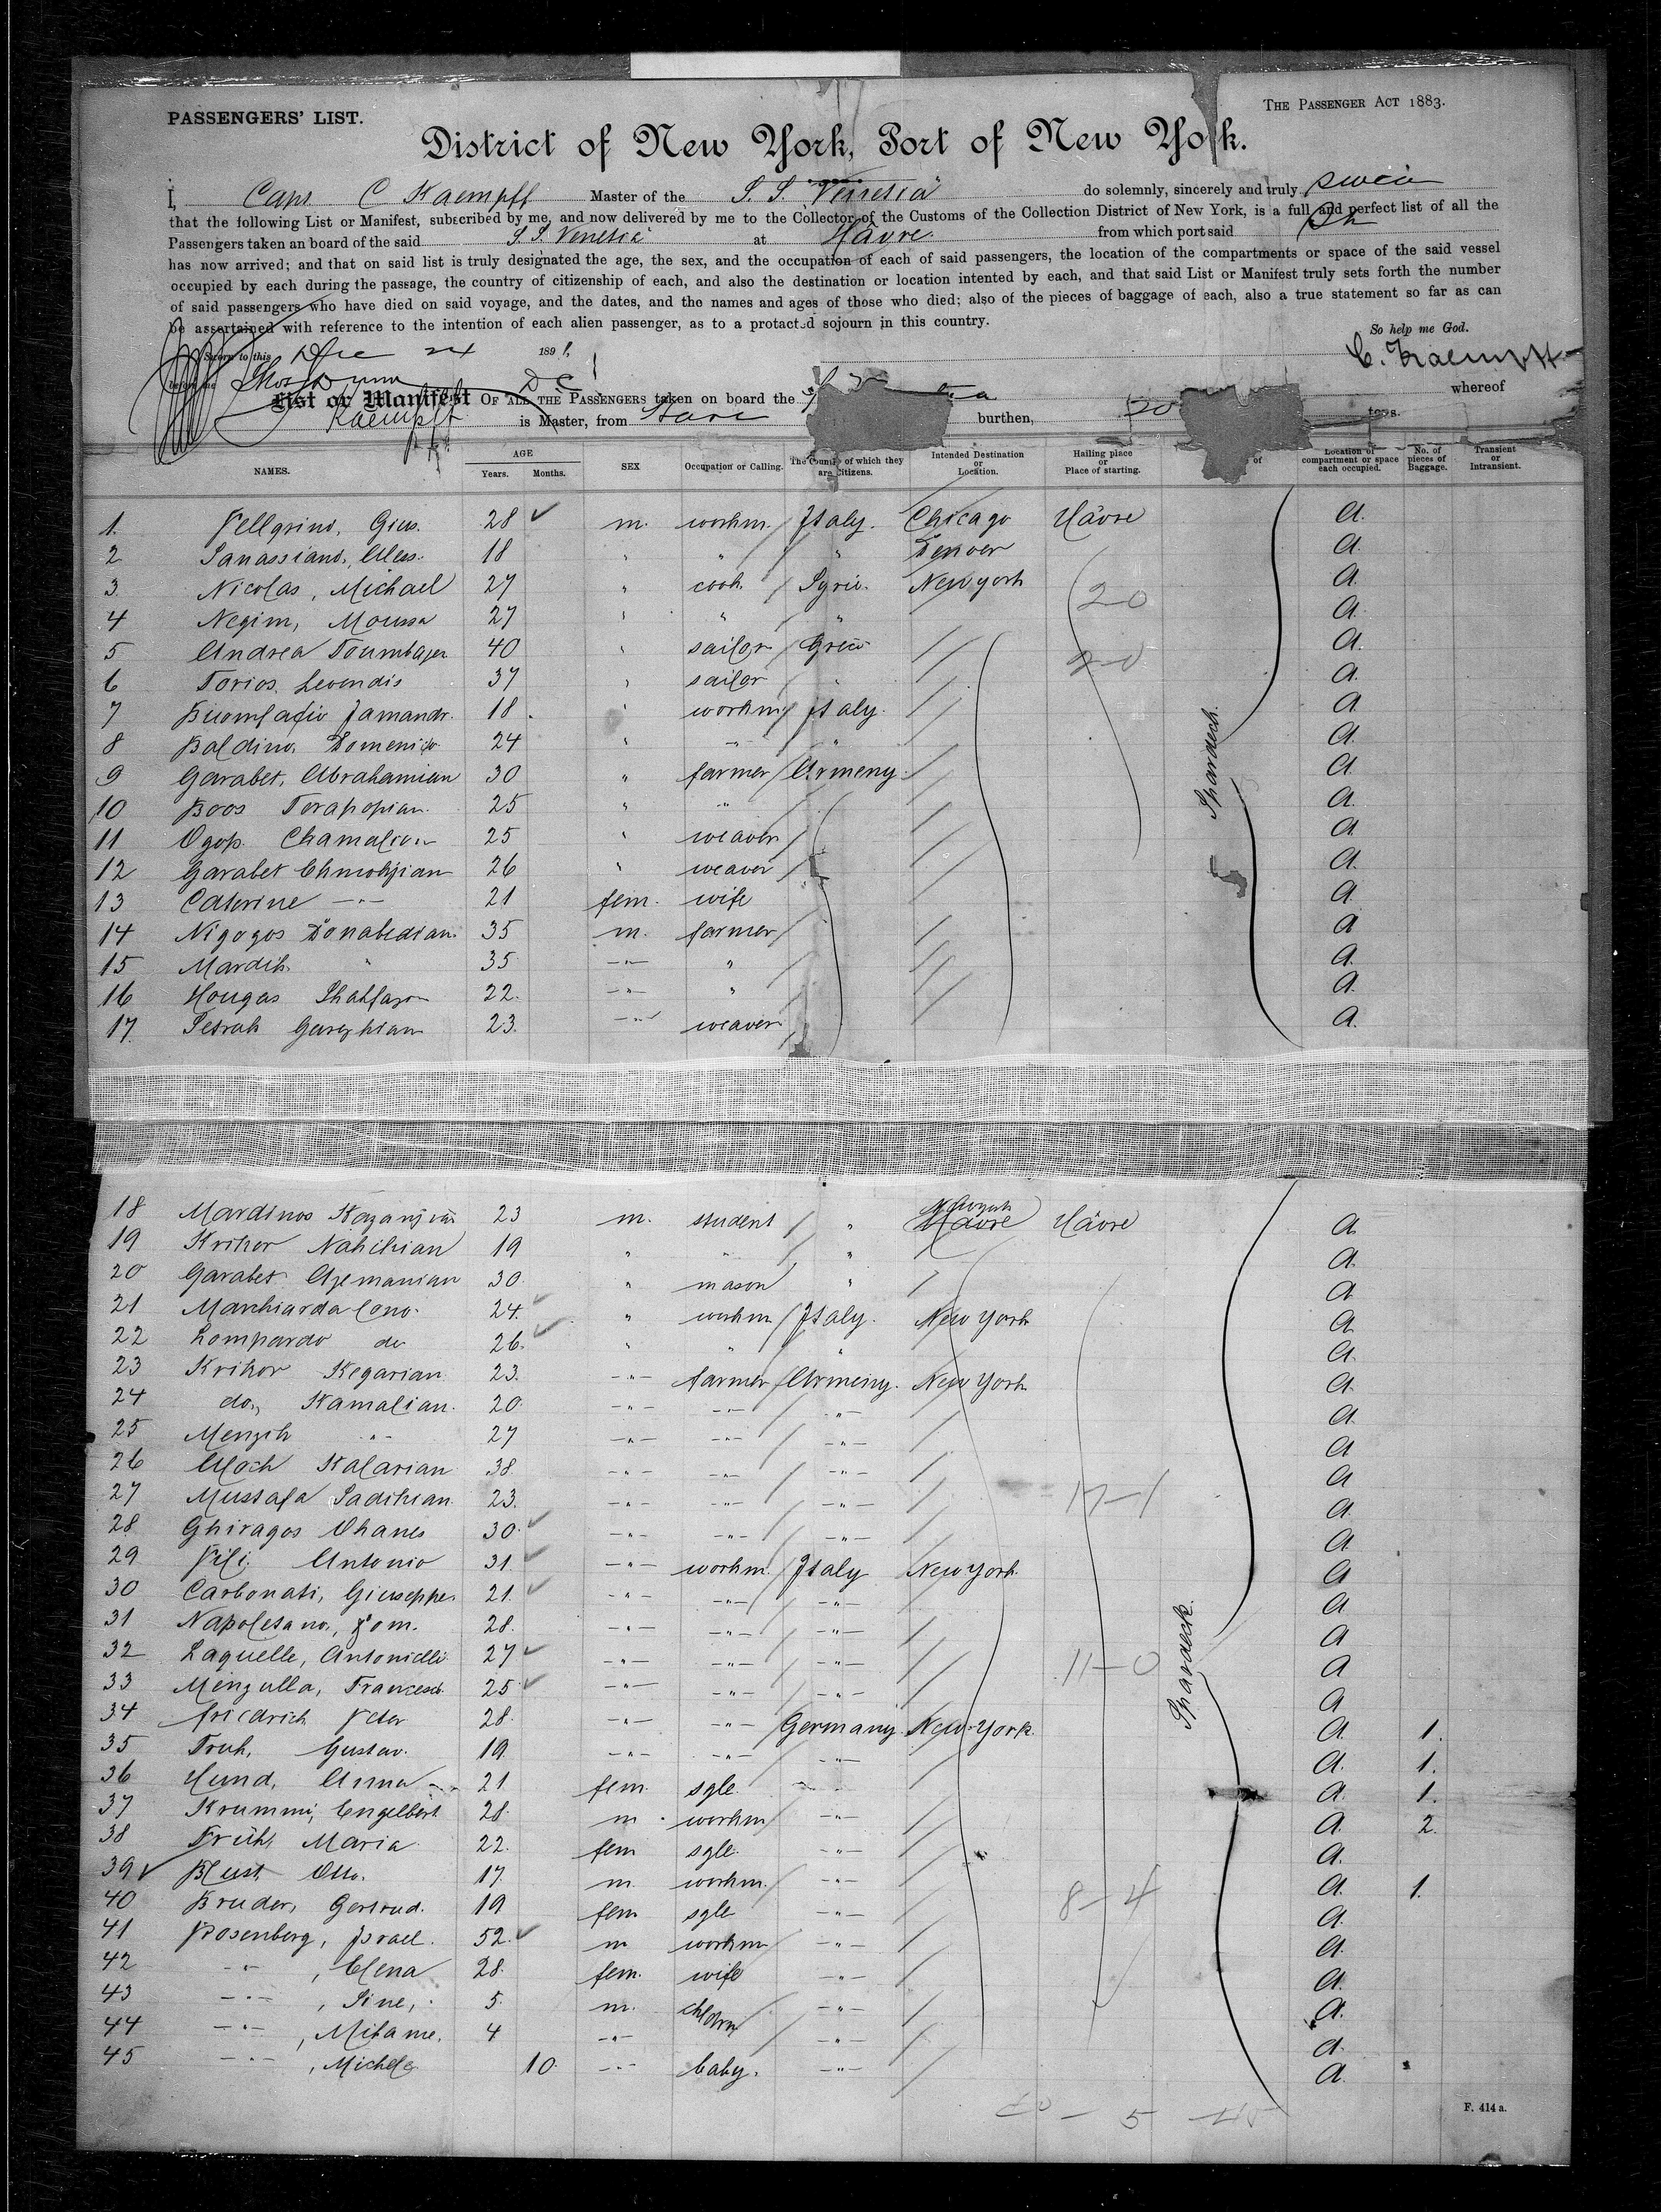 PASSENGERS' LIST.
THE PASSENGER ACT 1883.
District of New York, Port of New York.
I, Capt C Kaempff Master of the S. S. "Venetia" do solemnly, sincerely and truly swear
that the following List or Manifest, subscribed by me, and now delivered by me to the Collector of the Customs of the Collection District of New York, is a full and perfect list of all the
Passengers taken an board of the said S. S. Venetia at Hâvre from which port said
has now arrived; and that on said list is truly designated the age, the sex, and the occupation of each of said passengers, the location of the compartments or space of the said vessel
occupied by each during the passage, the country of citizenship of each, and also the destination or location intented by each, and that said List or Manifest truly sets forth the number
of said passengers who have died on said voyage, and the dates, and the names and ages of those who died; also of the pieces of baggage of each, also a true statement so far as can
be assertained with reference to the intention of each alien passenger, as to a protacted sojourn in this country.
So help me God.
Sworn to this Dec 24 1891,
C. Kaempff
before me Thos Dunn
whereof
List or Manifest OF ALL THE PASSENGERS taken on board the
Kaempff is Master, from Havre burthen, tons.
NAMES. AGE Years. Months. SEX Occupation or Calling. The Country of which they are Citizens. Intended Destination or Location. Hailing place or Place of starting. of Location of compartment or space each occupied. No. of pieces of Baggage. Transient or Intransient.
1. Pellgrino, Gius. 28 m. workm. Italy. Chicago Hâvre a.
2 Sanassiano, Aless. 18 " " " Denver a.
3. Nicolas, Michael 27 " cook Syria. New york a.
4 Negim, Moussa 27 " " " a.
20
5 Andrea Toumbazer 40 " sailor Grece a.
20
6 Torios, Levendis 37 " sailor " a.
7 Buomfatio Jamandr. 18. " workm Italy. a.
8 Baldino, Domenico 24 " -"- " a.
9 Garabet, Abrahamian 30 " farmer Armeny. a.
Spardeck.
10 Boos Torapopian. 25 " -"- a.
11 Ogop. Chamalian 25 " weaver a.
12 Garabet Chmohjian 26 " weaver a.
13 Caterine -"- 21 fem. wife a.
14 Nigogos Donabedian. 35 m. farmer a
15 Mardih " 35 -"- " a.
16 Hougas Shaltazon 22. -"- " a.
17. Petrak Garezhian 23. -"- weaver a.
18 Mardinos Kazanjian 23 m. student " Newyork Hâvre Hâvre a.
19 Krikor Nahihian 19 " " " a.
20 Garabet Azemanian 30. " mason " a
21 Marchiarda Cono. 24. " workm Italy. New York a.
22 Lompardo do 26. " " " a.
23 Krikor Kegarian. 23. -"- farmer Armeny. New York a.
24 do., Kamalian. 20. -"- -"- -"- a.
25 Menzih -"- 27 -"- -"- -"- a.
26 Kalarian 38. -"- -"- -"- a.
27 Mustafa Sadikian. 23. -"- -"- -"- 17-1 a.
28 Ghiragos Ohanes 30. -"- -"- -"- a.
29 Pili Antonio 31. -"- workm. Italy New York. a.
30 Carbonati, Giuseppe. 21. -"- -"- -"- a.
31 Napoletano, Dom. 28. -"- -"- -"- a
32 Laquelle, Antonielli 27 -"- -"- -"- 11-0 a
Spardeck.
33 Minzulla, Francesco. 25. -"- -"- -"- a
34 Friedrich Peter 28. -"- -"- Germany. New-York. a. 1.
35 Truh, Gustav. 19. -"- -"- -"- a. 1.
36 Hund, Anna 21. fem. sgle. -"- a. 1.
37 Krummi, Engelbert 28. m. workm -"- a. 2.
38 Früh, Maria 22. fem sgle. -"- a.
39 Blust, Otto. 17. m. workm. -"- a. 1.
40 Bruder, Gertrud. 19 fem sgle -"- 8-4 a.
41 Rosenberg, Israel. 52. m workm -"- a.
42 -"- , Elena 28. fem. wife -"- a.
43 -"- , Sine, 5. m. children -"- a.
44 -"- , Mitame. 4 -"- -"- a.
45 -"- , Michele 10. -"- baby. -"- a.
40 - 5 - 45
F. 414 a.